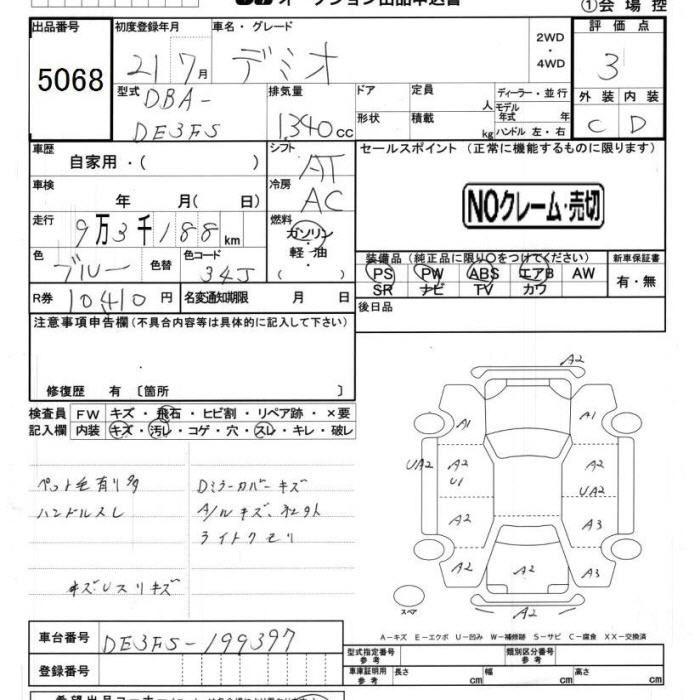 オークション出品申込書
①会場控
出品番号 5068
初度登録年月 21 7月
車名・グレード デミオ
2WD・4WD
評価点 3
外装 内装
C D
型式 DBA-DE3FS
排気量 1,340cc
ドア 定員 人
形状 積載 kg
ディーラー・並行
モデル年式 年
ハンドル 左・右
車歴 自家用・( )
シフト AT
セールスポイント (正常に機能するものに限ります)
車検 年 月( 日)
冷房 AC
NOクレーム・売切
走行 9万3千188km
燃料 ガソリン・軽油 ( )
色 ブルー 色替 色コード 34J
装備品 (純正品に限り○をつけてください) 新車保証書
PS PW ABS エアB AW 有・無
SR ナビ TV カワ
R券 10410円 名変通知期限 月 日
後日品
注意事項申告欄 (不具合内容等は具体的に記入して下さい)
修復歴 有 〔箇所 〕
検査員 FW キズ・飛石・ヒビ割・リペア跡・×要
記入欄 内装 キズ・汚レ・コゲ・穴・スレ・キレ・破レ
ペット毛有り
ハンドルスレ
キズ・Uスリキズ
Dミラーカバーキズ
A/Wキズ、
ライトクモリ
A2
A1 A1
UA2 A2 U1 A2 UA2
A2 A3
A2 A2 A3
A2
スペア
A-キズ E-エクボ U-凹み W-補修跡 S-サビ C-腐食 XX-交換済
車台番号 DE3FS-199397
登録番号
型式指定番号 参考 類別区分番号 参考
車庫証明用 参考 長さ cm 幅 cm 高さ cm
希望出品コーナー